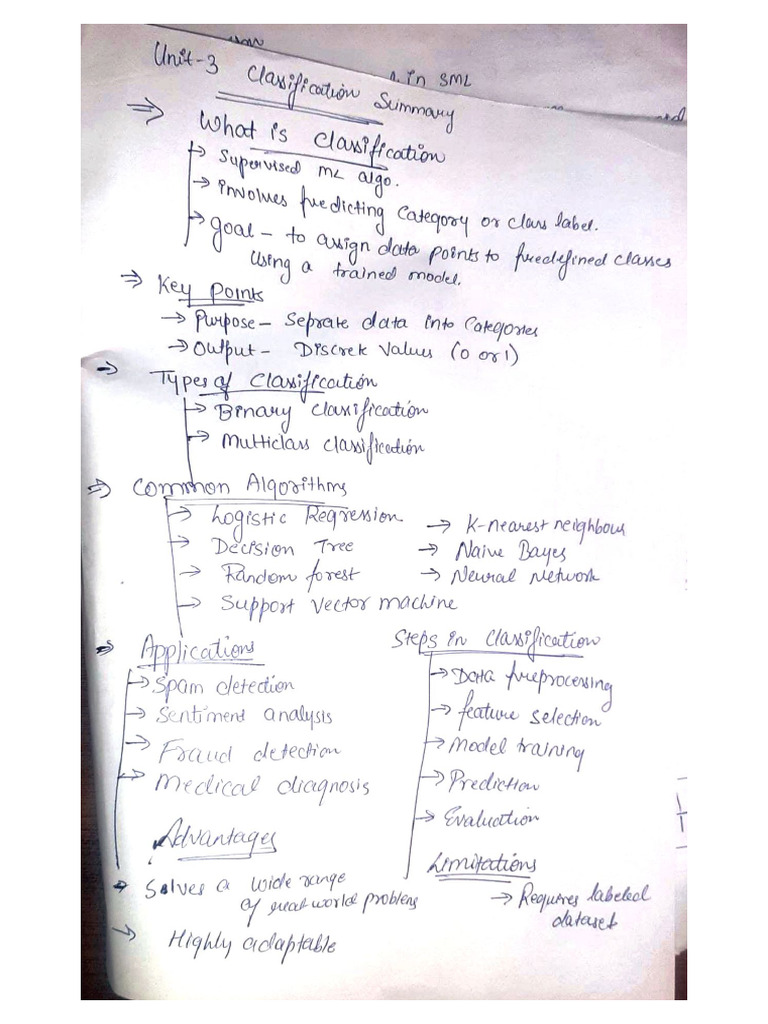 Unit-3 Classification Summary
in SML
⇒ What is Classification
→ Supervised ML algo.
→ involves predicting Category or class label.
→ goal - to assign data points to predefined classes
using a trained model.
⇒ Key Points
→ Purpose - Seprate data into Categories
→ Output - Discrete Values (0 or 1)
⇒ Types of Classification
→ Binary classification
→ Multiclass classification
⇒ Common Algorithms
→ Logistic Regression → K-nearest neighbous
→ Decision Tree → Naive Bayes
→ Random forest → Neural Network
→ Support vector machine
→ Applications
→ Spam detection
→ Sentiment analysis
→ Fraud detection
→ Medical diagnosis
Steps in Classification
→ Data preprocessing
→ feature selection
→ Model training
→ Prediction
→ Evaluation
Advantages
→ Solves a wide range
of real world problems
→ Highly adaptable
Limitations
→ Requires labeled
dataset